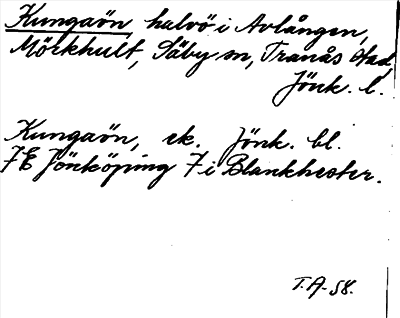 Kungaön halvö i Avlången,
Mörkhult, Säby sn, Tranås stad,
Jönk. l.
Kungaön, ek. Jönk. bl.
7E Jönköping 7 i Blankhester.
T.A-58.